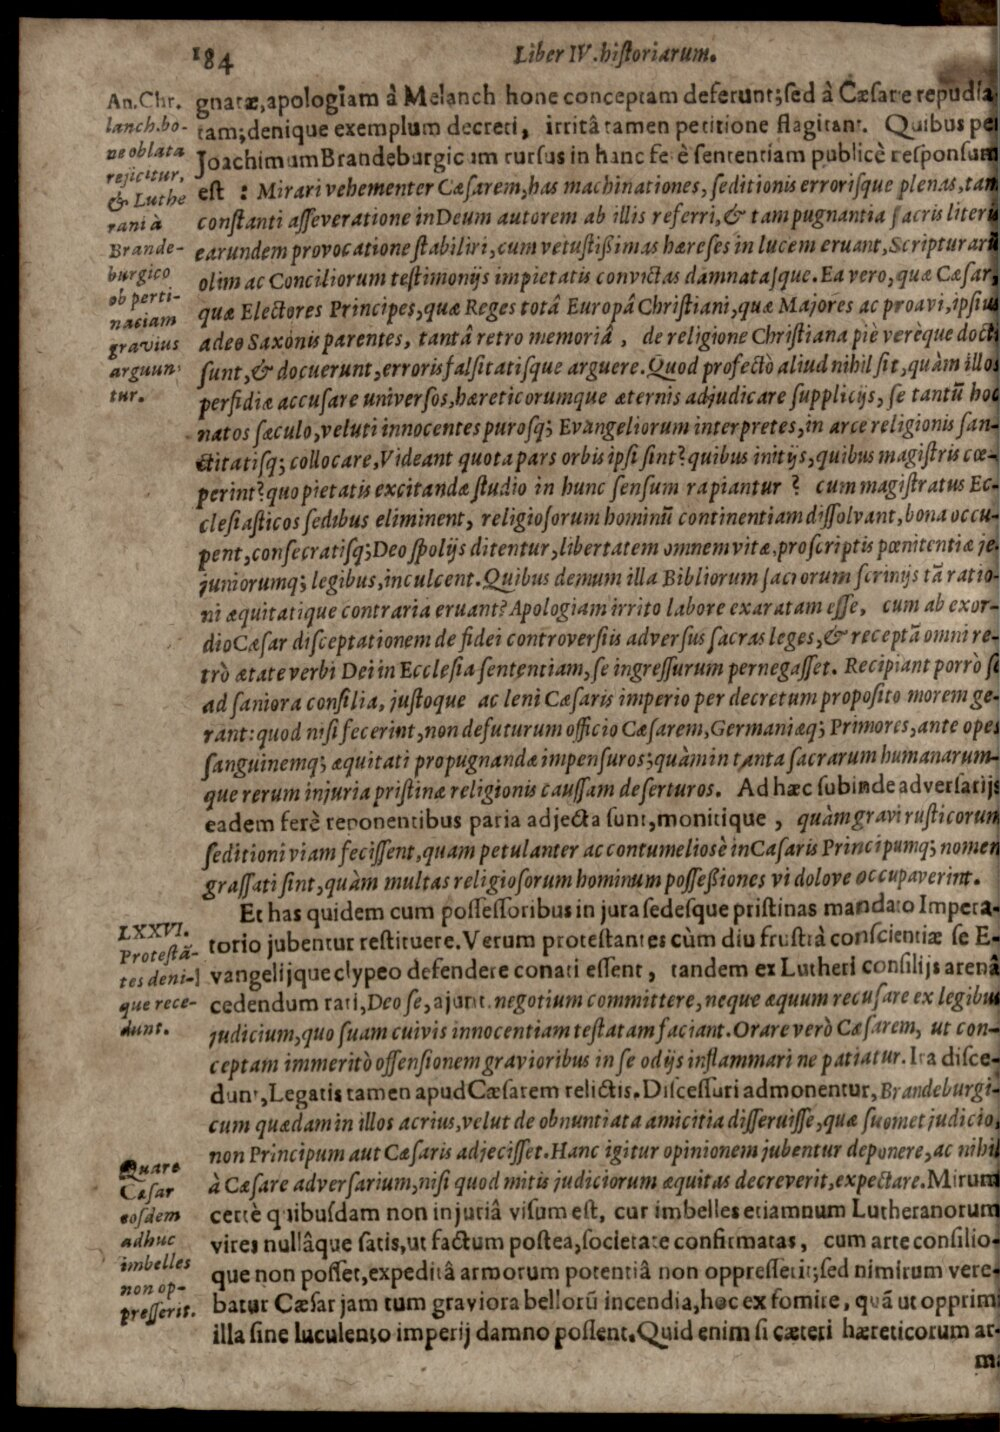 184
Liber IV. historiarum.
An. Chr.
lanch. bo-
ne oblata
rejicitur,
& Luthe
rani à
Brande-
burgico
ob perti-
naciam
gravius
arguun-
tur.
gnatæ, apologiam â Melanch hone conceptam deferunt; sed à Cæsare repudia
tam; denique exemplum decreti, irritâ tamen petitione flagitant. Quibus per
Joachimum Brandeburgicum rursus in hanc ferè sententiam publicè responsum
est : Mirari vehementer Cæsarem, has machinationes, seditionis errorisque plenas, tam
constanti asseveratione in Deum autorem ab illis referri, & tam pugnantia sacris literis
earundem provocatione stabiliri, cum vetustißimas hæreses in lucem eruant, Scripturarũ
olim ac Conciliorum testimonijs impietatis convictas damnatasque. Ea vero, quæ Cæsar,
quæ Electores Principes, quæ Reges totâ Europâ Christiani, quæ Majores ac proavi, ipsius
adeo Saxonis parentes, tantâ retro memoriâ , de religione Christiana piè verèque docti
sunt, & docuerunt, erroris falsitatisque arguere. Quod profectò aliud nihil sit, quàm illos
perfidiæ accusare universos, hæreticorumque æternis adjudicare supplicijs, se tantũ hoc
natos sæculo, veluti innocentes purosq; Evangeliorum interpretes, in arce religionis san-
ctitatisq; collocare, Videant quota pars orbis ipsi sint? quibus initijs, quibus magistris cœ-
perint? quo pietatis excitandæ studio in hunc sensum rapiantur ? cum magistratus Ec-
clesiasticos sedibus eliminent, religiosorum hominũ continentiam dissolvant, bona occu-
pent, consecratisq; Deo spolijs ditentur, libertatem omnem vitæ, proscriptis pœnitentiæ je-
juniorumq; legibus, inculcent. Quibus demum illa Bibliorum sacrorum scrinijs tã ratio-
ni æquitatique contraria eruant? Apologiam irrito labore exaratam esse, cum ab exor-
dio Cæsar disceptationem de fidei controversiis adversus sacras leges, & receptã omni re-
trò ætate verbi Dei in Ecclesia sententiam, se ingressurum pernegasset. Recipiant porrò se
ad saniora consilia, justoque ac leni Cæsaris imperio per decretum proposito morem ge-
rant: quod nisi fecerint, non defuturum officio Cæsarem, Germaniæq; Primores, ante opes
sanguinemq; æquitati propugnandæ impensuros; quàm in tanta sacrarum humanarum-
que rerum injuria pristinæ religionis caussam deserturos. Ad hæc subinde adversarijs
eadem ferè reponentibus paria adjecta sunt, monitique , quàm gravi rusticorum
seditioni viam fecissent, quam petulanter ac contumeliosè in Cæsaris Principumq; nomen
grassati sint, quàm multas religiosorum hominum possessiones vi dolove occupaverint.
LXXVI.
Protestã-
tes deni-
que rece-
dunt.
Et has quidem cum possessoribus in jura sedesque pristinas mandato Impera-
torio jubentur restituere. Verum protestantes cùm diu frustrà conscientiæ se E-
vangelijque clypeo defendere conati essent, tandem ex Lutheri consilijs arenâ
cedendum rati, Deo se, ajunt. negotium committere, neque æquum recusare ex legibus
judicium, quo suam cuivis innocentiam testatam faciant. Orare verò Cæsarem, ut con-
ceptam immeritò offensionem gravioribus in se odijs inflammari ne patiatur. Ita disce-
dunt, Legatis tamen apud Cæsarem relictis. Discessuri admonentur, Brandeburgi-
cum quædam in illos acrius, velut de obnuntiata amicitia disseruisse, quæ suomet judicio,
non Principum aut Cæsaris adjecisset. Hanc igitur opinionem jubentur deponere, ac nihil
à Cæsare adversarium, nisi quod mitis judiciorum æquitas decreverit, expectare. Mirum
Quare
Cæsar
eosdem
adhuc
imbelles
non op-
presserit.
certè quibusdam non injuriâ visum est, cur imbelles etiamnum Lutheranorum
vires nullâque satis, ut factum postea, societate confirmatas, cum arte consilio-
que non posset, expeditâ armorum potentiâ non oppresserit; sed nimirum vere-
batur Cæsar jam tum graviora bellorũ incendia, hoc ex fomite, quã ut opprimi
illa sine luculento imperij damno possent. Quid enim si cæteri hæreticorum ar-
ma